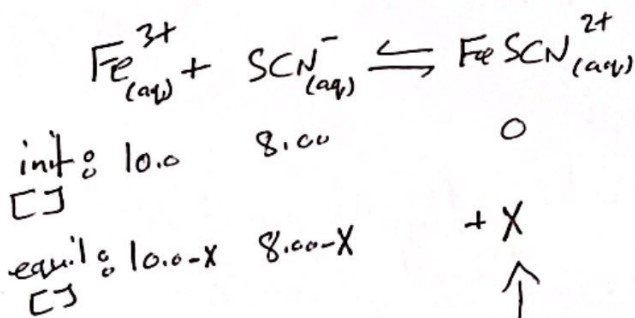 Fe³⁺(aq) + SCN⁻(aq) ⇌ FeSCN²⁺(aq)
init: 10.0 8.00 0
[]
equil: 10.0-X 8.00-X +X
[]
↑